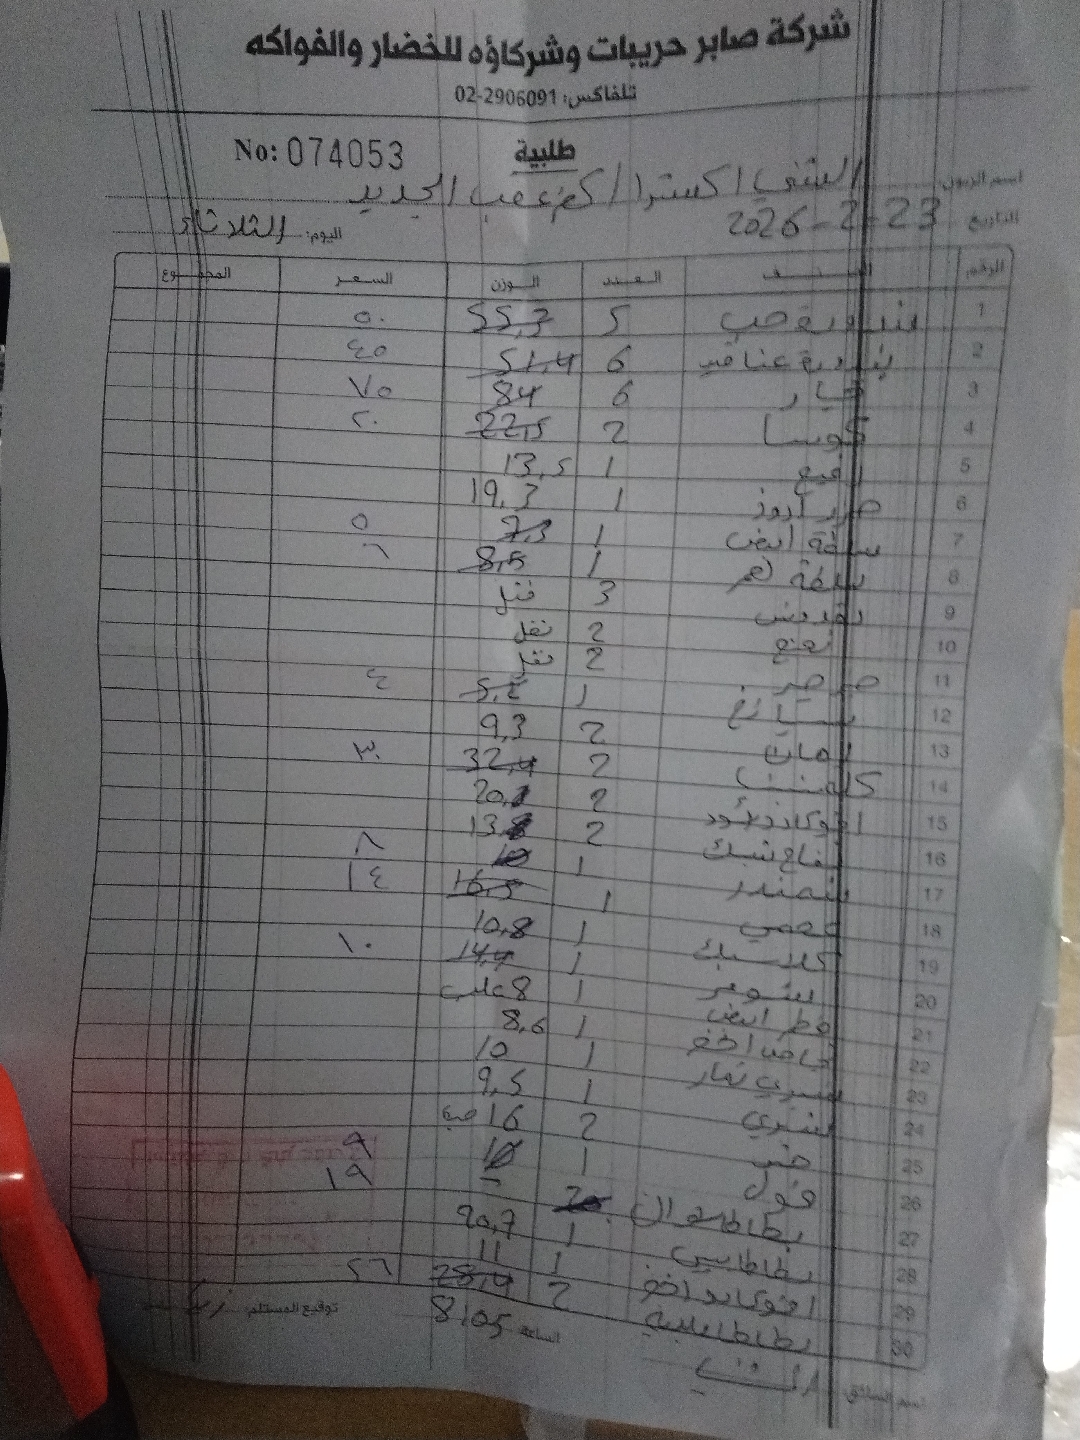 شركة صابر حريبات وشركاؤه للخضار والفواكه
تلفاكس: 02-2906091
طلبية
No: 074053
اسم الزبون: الشني اكسترا / كفر عقب الجديد
التاريخ: 2026-2-23 اليوم: الثلاثاء
الرقم الصنف العدد الوزن السعر المجموع
1 بندورة حب 5 55,3 ٥٠
2 بندورة عناقيد 6 51,4 ٤٥
3 خيار 6 84 ٧٥
4 كوسا 2 22,5 ٢٠
5 1 13,5
6 1 19,3
7 بصلة ابيض 1 7,3 ٥
8 1 8,5 ٦
9 بقدونس 3 نقل
10 نعنع 2 نقل
11 جرجير 2 نقل
12 سبانخ 1 5,2 ٤
13 رمان 2 9,3
14 كلمنتينا 2 32,4 ٣٠
15 افوكادو أسود 2
16 تفاح 2
17 شمندر 1 10 ٨
18 عجمي 1 16,5 ١٤
19 كلاسيك 1 10,8
20 شومر 1 14,4 ١٠
21 فطر ابيض 1 8 علب
22 حامض اخضر 1 8,6
23 1 10
24 شيري 1 9,5
25 خس 2 16 حبة
26 فول 1 ٩
27 بطاطا ١٩
28 بطاطا 1 20,7
29 افوكادو اخضر 1 11
30 بطاطا 2 28,4 ٢٦
الساعة 8:05 توقيع المستلم:
اسم السائق: الشني